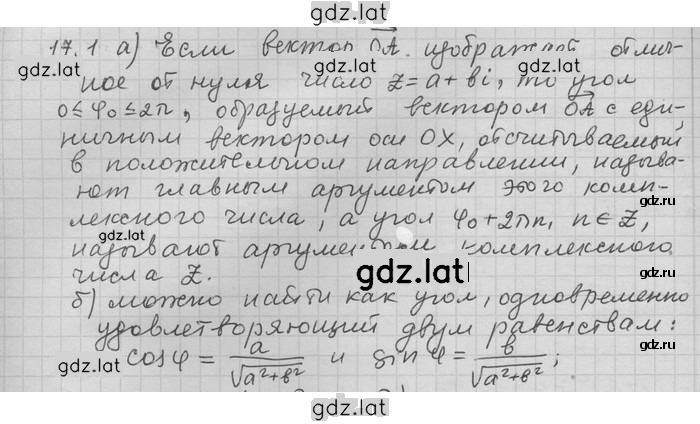 gdz.lat
17.1 а) Если вектор OA изображает отлич-
gdz.lat gdz.lat
ное от нуля число z = a + bi, то угол
0 ≤ φ₀ ≤ 2π, образуемый вектором OA с еди-
ничным вектором оси OX, отсчитываемый
в положительном направлении, называ-
ют главным аргументом этого комп-
лексного числа, а угол φ₀ + 2πn, n ∈ Z,
называют аргументом комплексного
gdz.lat
числа Z.
б) можно найти как угол, одновременно
удовлетворяющий двум равенствам:
gdz.lat gdz.lat
cos φ = a/√(a² + b²) и sin φ = b/√(a² + b²);
gdz.lat